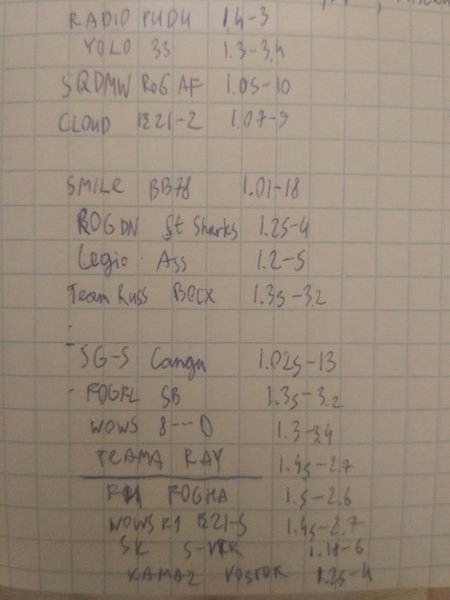 RADIO PUDU 1.4-3
YOLO 3S 1.3-3.4
SQDMW RoG AF 1.05-10
CLOUD B21-2 1.07-9
SMILE BB78 1.01-18
ROG DN St Sharks 1.25-4
Legio. Ass 1.2-5
Team Russ Becx 1.35-3.2
SG-S Canga 1.025-13
ROGFL SB 1.35-3.2
WOWS 8---D 1.3-3.4
TEAMA RAY 1.45-2.7
ROGHA 1.5-2.6
WOWS R1 B21-S 1.45-2.7
SK
KAMAZ VOSTOK 1.25-4